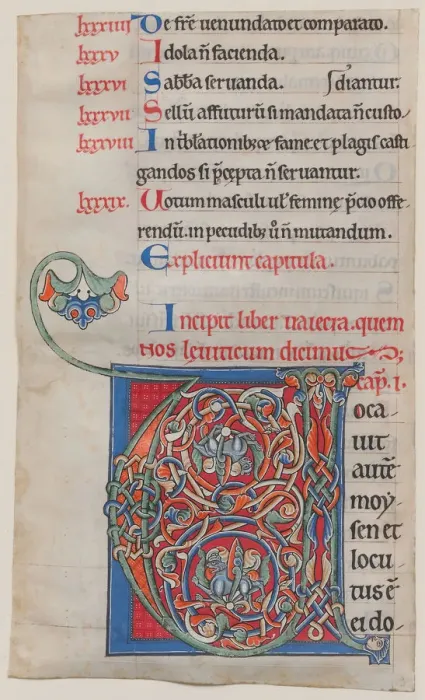 lxxxiiii De fr̄e uenundato et comparato.
lxxxv Idola n̄ facienda.
lxxxvi Sabb̄a seruanda. diantur.
lxxxvii Sellū affuturū si mandata n̄ custo-
lxxxviii In t'blationibꝫ fame et plagis casti
gandos si p̄cepta n̄ seruantur.
lxxxix. Uotum masculi ul' femine p̄cio offe-
rendū. in pecudibꝫ uͦ n̄ mutandum.
Expliciunt capitula.
Incipit liber uaiecra. quem
nos leuiticum dicimus
cap̄. i.
V oca-
uit
autē
moy-
sen et
locu-
tus ē
ei do-